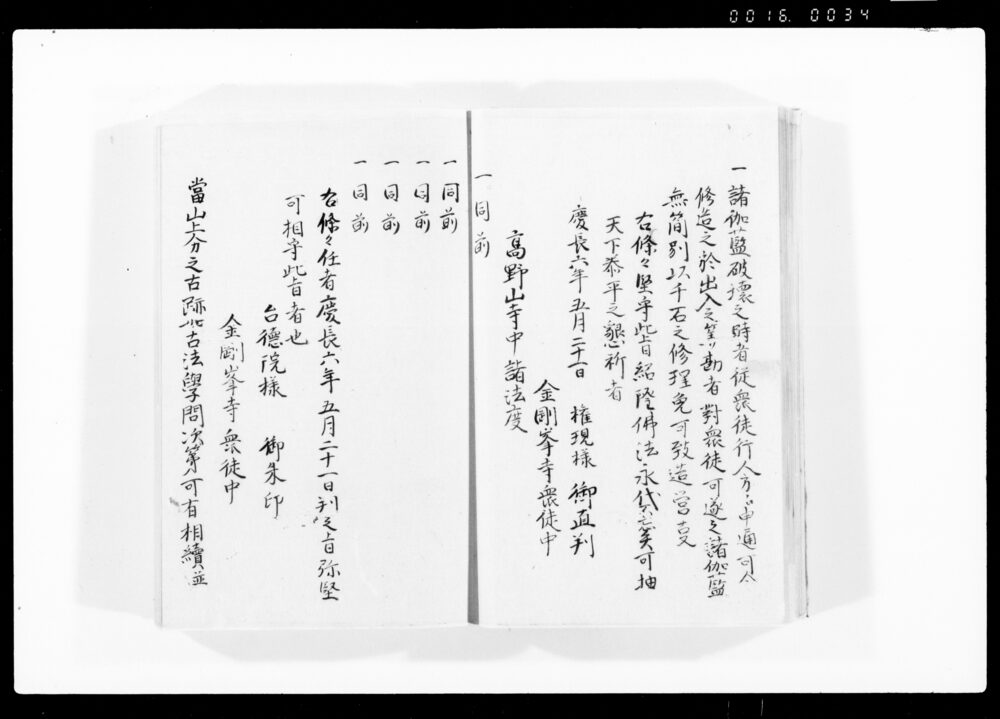 0016. 0034
一諸伽藍破壊之時者従衆徒行人方江申通可令
修造之於出入之算勘者對衆徒可遂之諸伽藍
無簡別以千石之修理免可致造営支
右條々堅守此旨紹隆佛法永代莫可抽
天下泰平之懇祈者
慶長六年五月二十一日　權現様　御直判
金剛峯寺衆徒中
高野山寺中諸法度
一同前
一同前
一同前
一同前
一同前
右條々任者慶長六年五月二十一日判之旨弥堅
可相守此旨者也
台德院様　御朱印
金剛峯寺衆徒中
當山上分之古跡以古法學問次第可有相續並